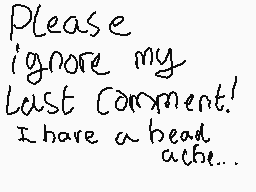 Please
ignore my
Last Comment!
I have a head
ache...